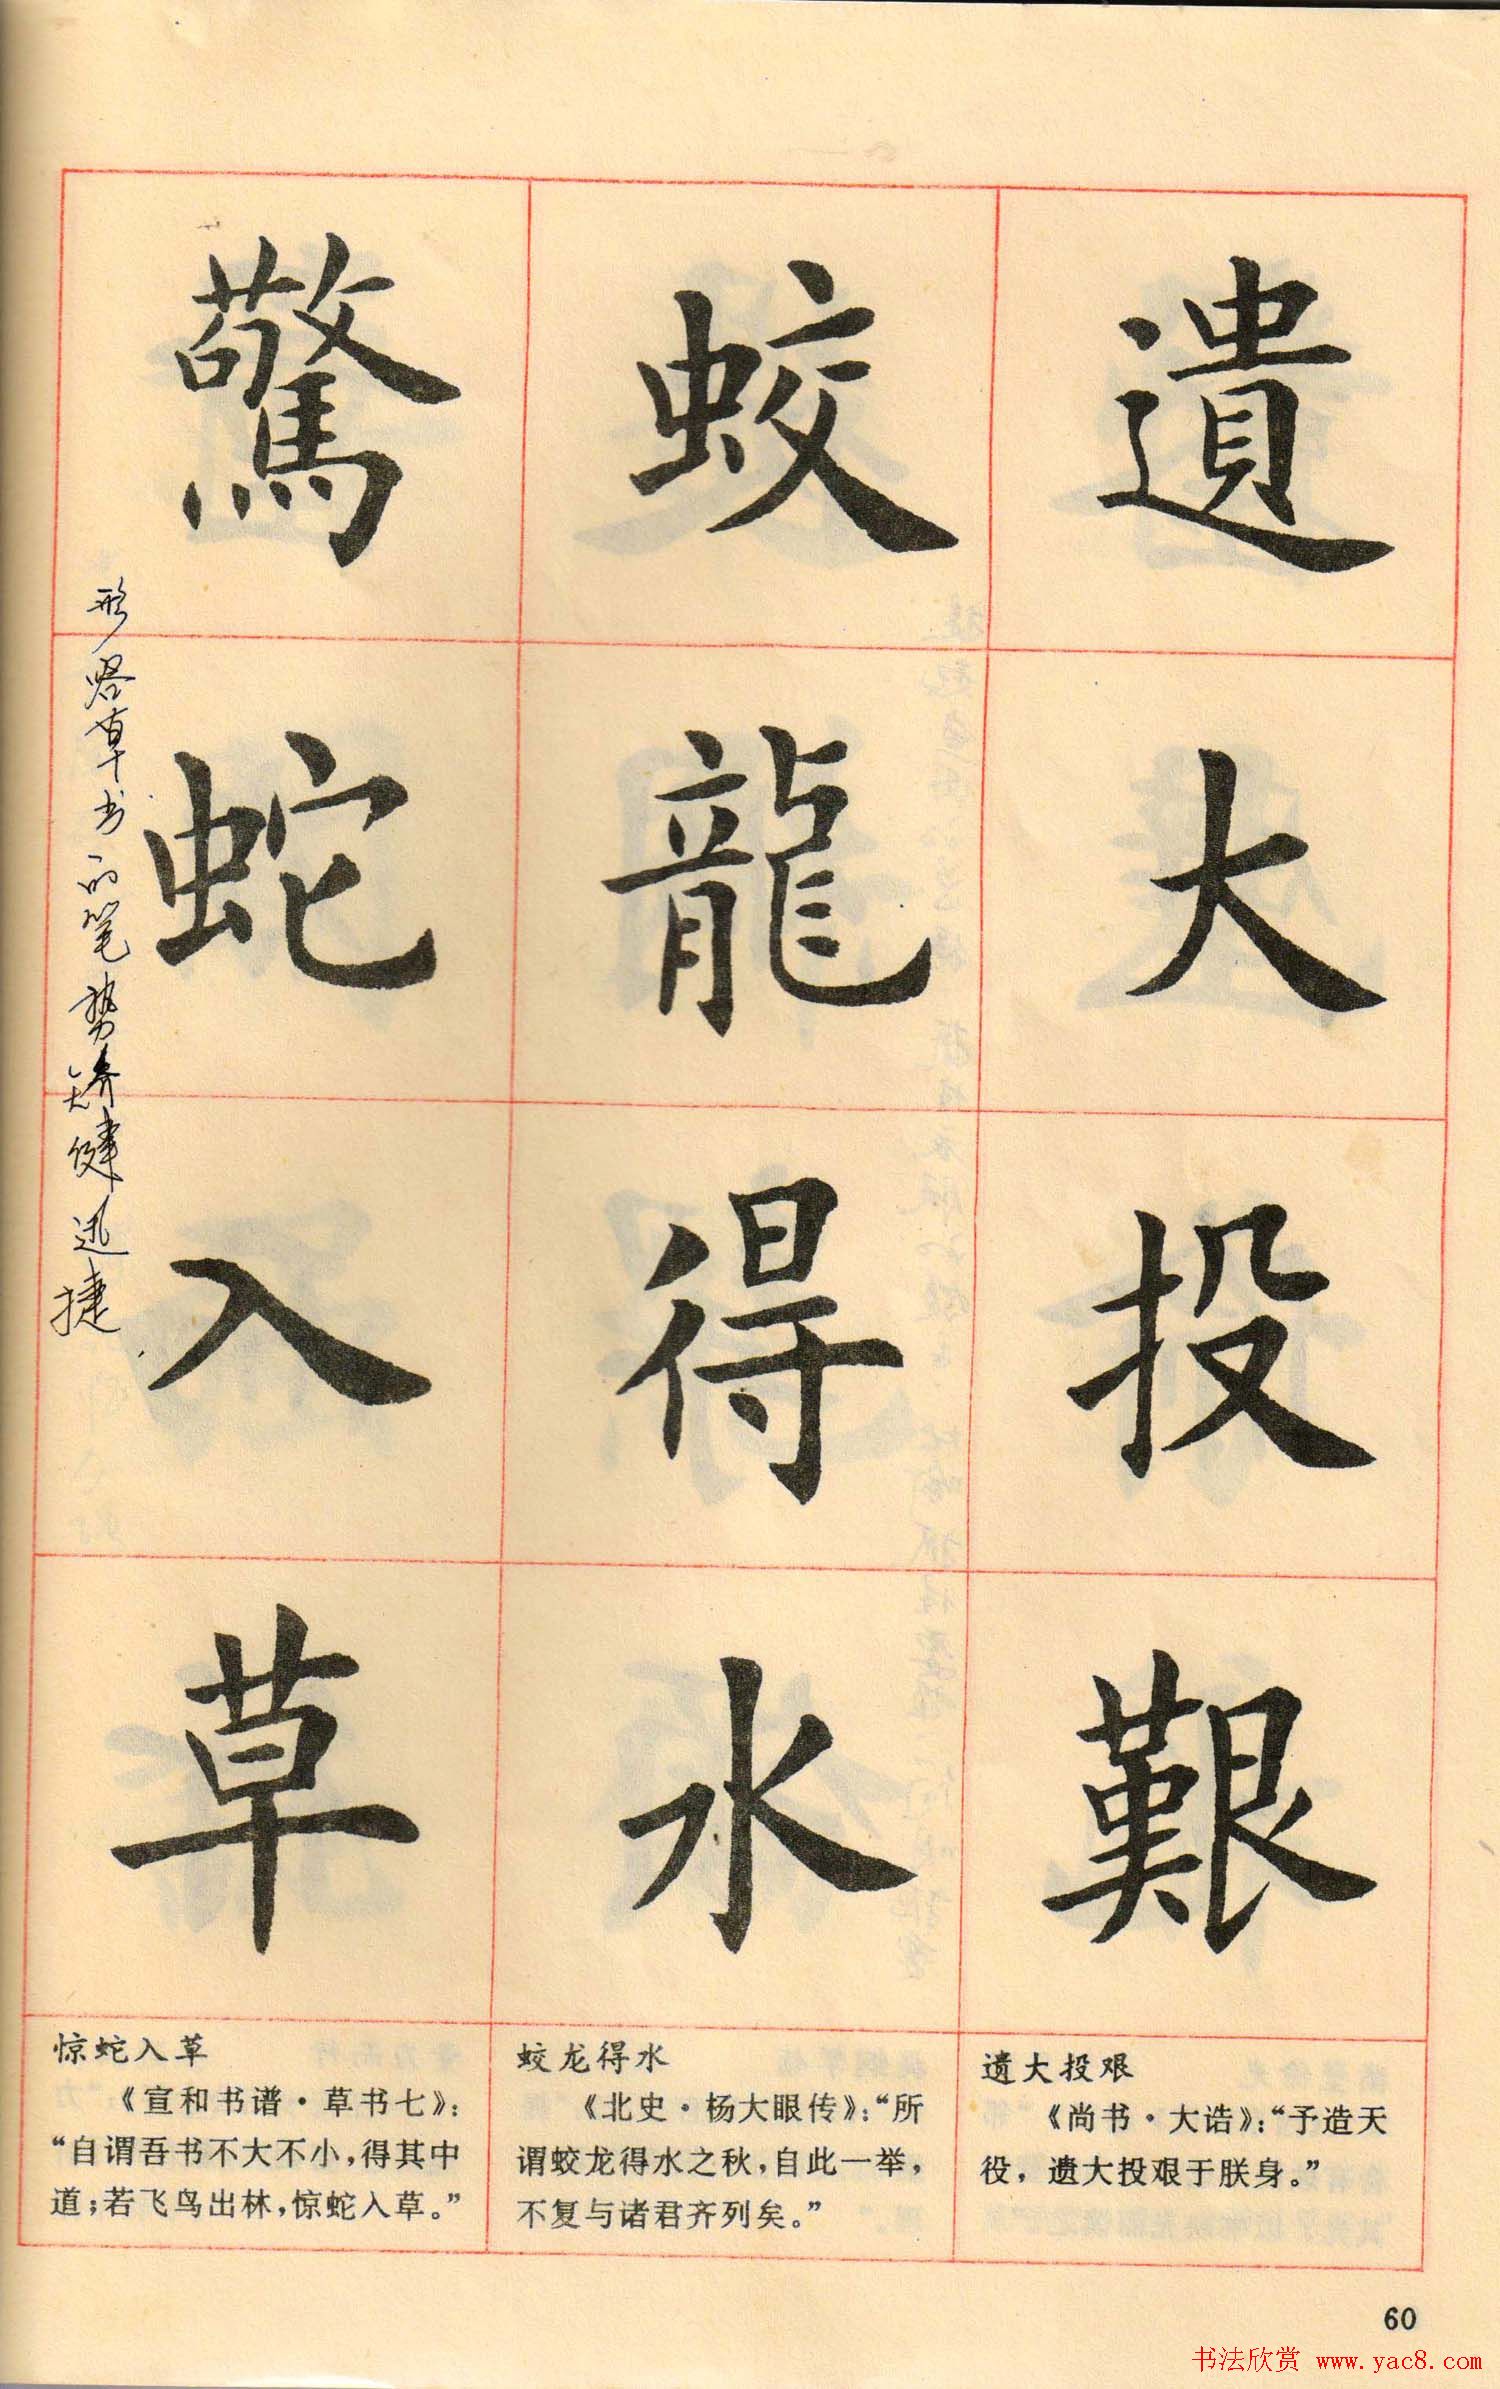 遺大投艱
蛟龍得水
驚蛇入草
形容草书的笔势矫健迅捷
遗大投艰
《尚书·大诰》：“予造天
役，遗大投艰于朕身。”
蛟龙得水
《北史·杨大眼传》：“所
谓蛟龙得水之秋，自此一举，
不复与诸君齐列矣。”
惊蛇入草
《宣和书谱·草书七》：
“自谓吾书不大不小，得其中
道；若飞鸟出林，惊蛇入草。”
60
书法欣赏 www.yac8.com